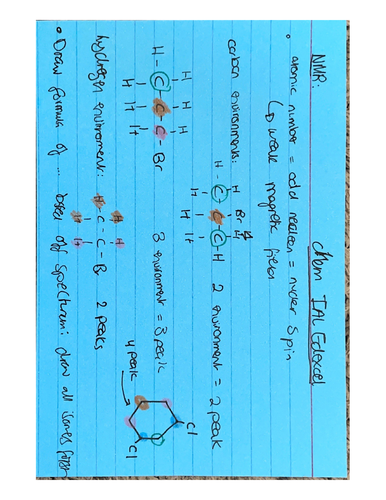 Chem IAL Edexcel
NMR:
• atomic number = odd = nuclear spin
↳ weak magnetic field
carbon environments:
H Br H
H - C - C - C - H
H H H
2 environment = 2 peak
H H H
H - C - C - C - Br
H H H
3 environment = 3 peak
Cl
Cl
4 peak
hydrogen environment:
H H
H - C - C - B
H H
2 peaks
• Draw formula of ... based off spectrum: draw all isomers first